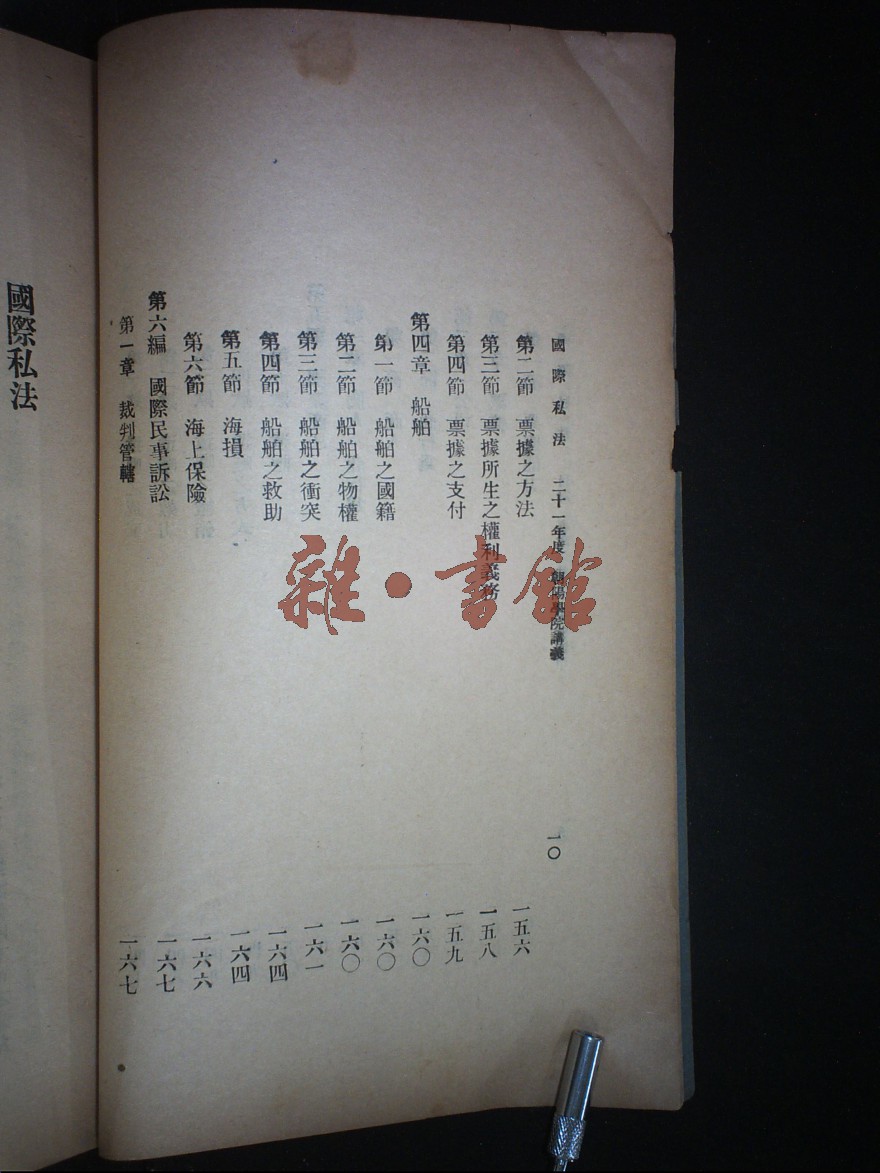 國際私法 二十一年度 朝陽學院講義 一〇
第二節 票據之方法 一五六
第三節 票據所生之權利義務 一五八
第四節 票據之支付 一五九
第四章 船舶 一六〇
第一節 船舶之國籍 一六〇
第二節 船舶之物權 一六〇
第三節 船舶之衝突 一六一
第四節 船舶之救助 一六四
第五節 海損 一六四
第六節 海上保險 一六六
第六編 國際民事訴訟 一六七
第一章 裁判管轄 一六七
國際私法
雜·書館